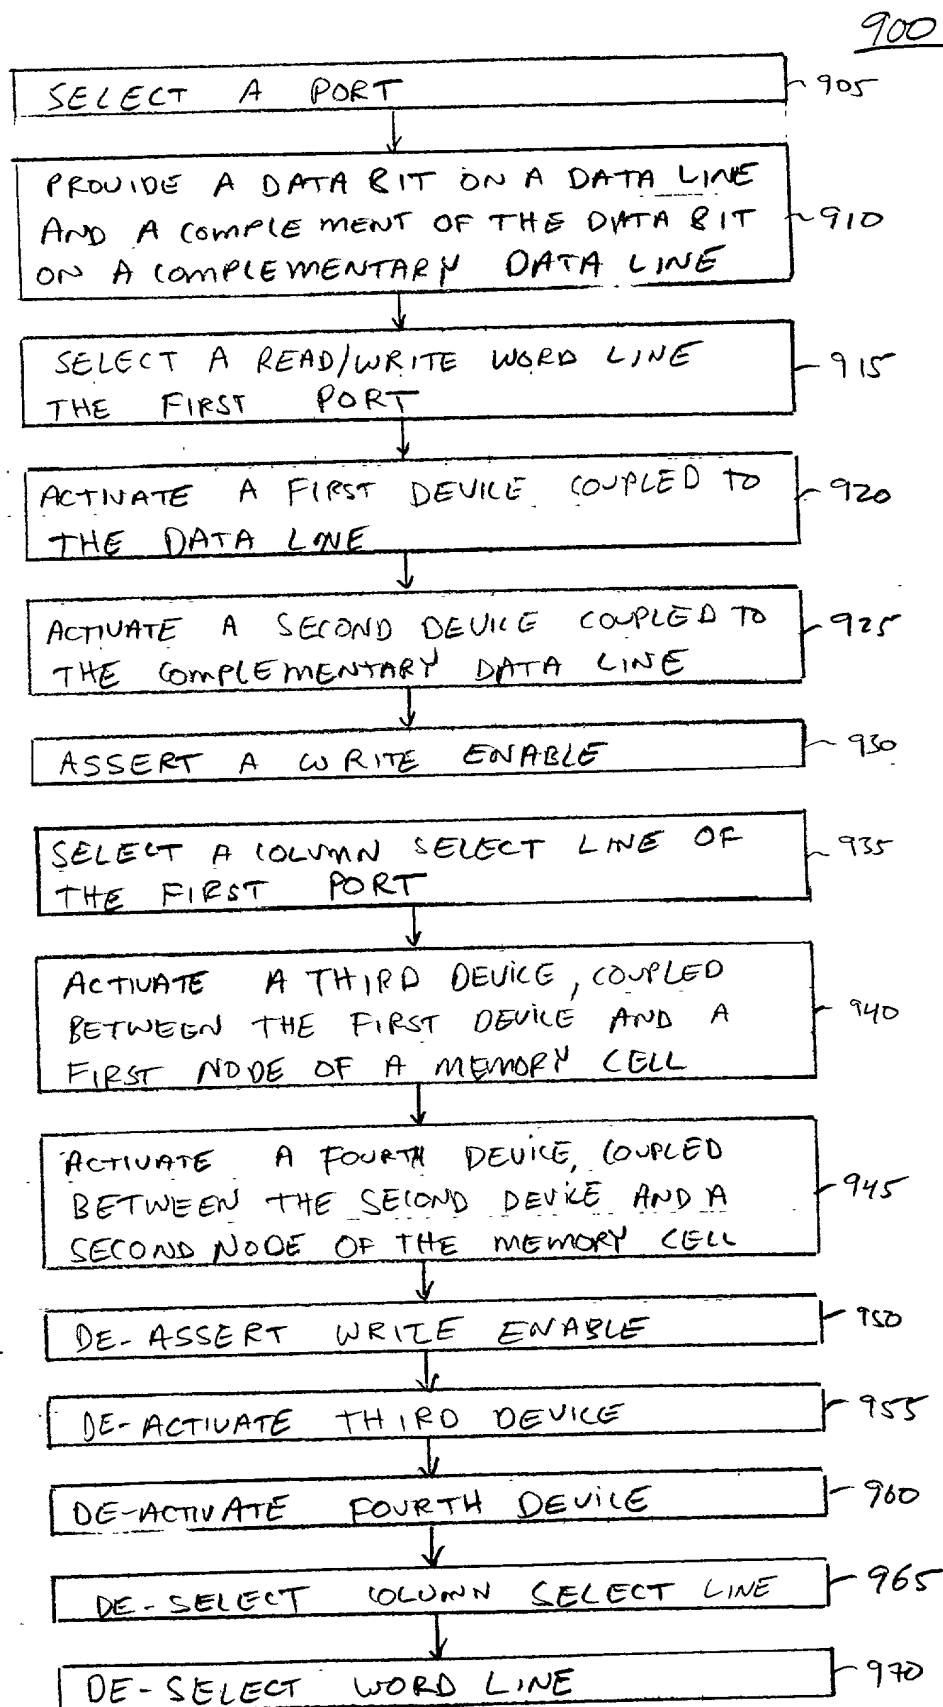 900
SELECT A PORT
905
PROVIDE A DATA BIT ON A DATA LINE
AND A COMPLEMENT OF THE DATA BIT
ON A COMPLEMENTARY DATA LINE
910
SELECT A READ/WRITE WORD LINE
THE FIRST PORT
915
ACTIVATE A FIRST DEVICE COUPLED TO
THE DATA LINE
920
ACTIVATE A SECOND DEVICE COUPLED TO
THE COMPLEMENTARY DATA LINE
925
ASSERT A WRITE ENABLE
930
SELECT A COLUMN SELECT LINE OF
THE FIRST PORT
935
ACTIVATE A THIRD DEVICE, COUPLED
BETWEEN THE FIRST DEVICE AND A
FIRST NODE OF A MEMORY CELL
940
ACTIVATE A FOURTH DEVICE, COUPLED
BETWEEN THE SECOND DEVICE AND A
SECOND NODE OF THE MEMORY CELL
945
DE-ASSERT WRITE ENABLE
950
DE-ACTIVATE THIRD DEVICE
955
DE-ACTIVATE FOURTH DEVICE
960
DE-SELECT COLUMN SELECT LINE
965
DE-SELECT WORD LINE
970